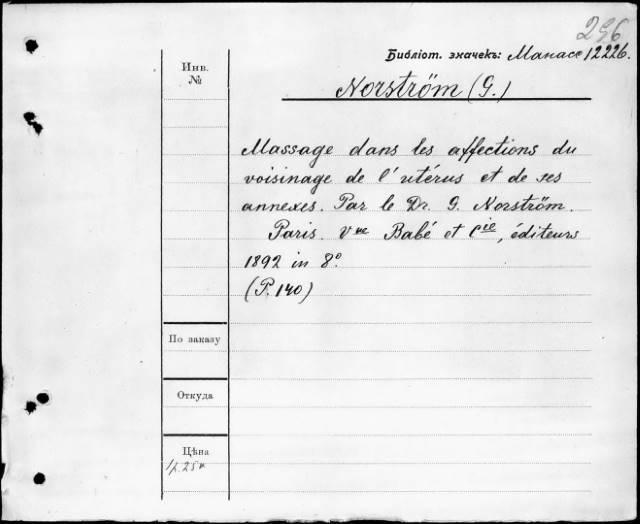 296
Библіот. значекъ: Манасс 12226.
Инв.
№
Norström (G.)
Massage dans les affections du
voisinage de l'utérus et de ses
annexes. Par le Dr. G. Norström.
Paris. Vve Babé et Cie, éditeurs
1892 in 8º
(P. 140)
По заказу
Откуда
Цѣна
1р. 25к